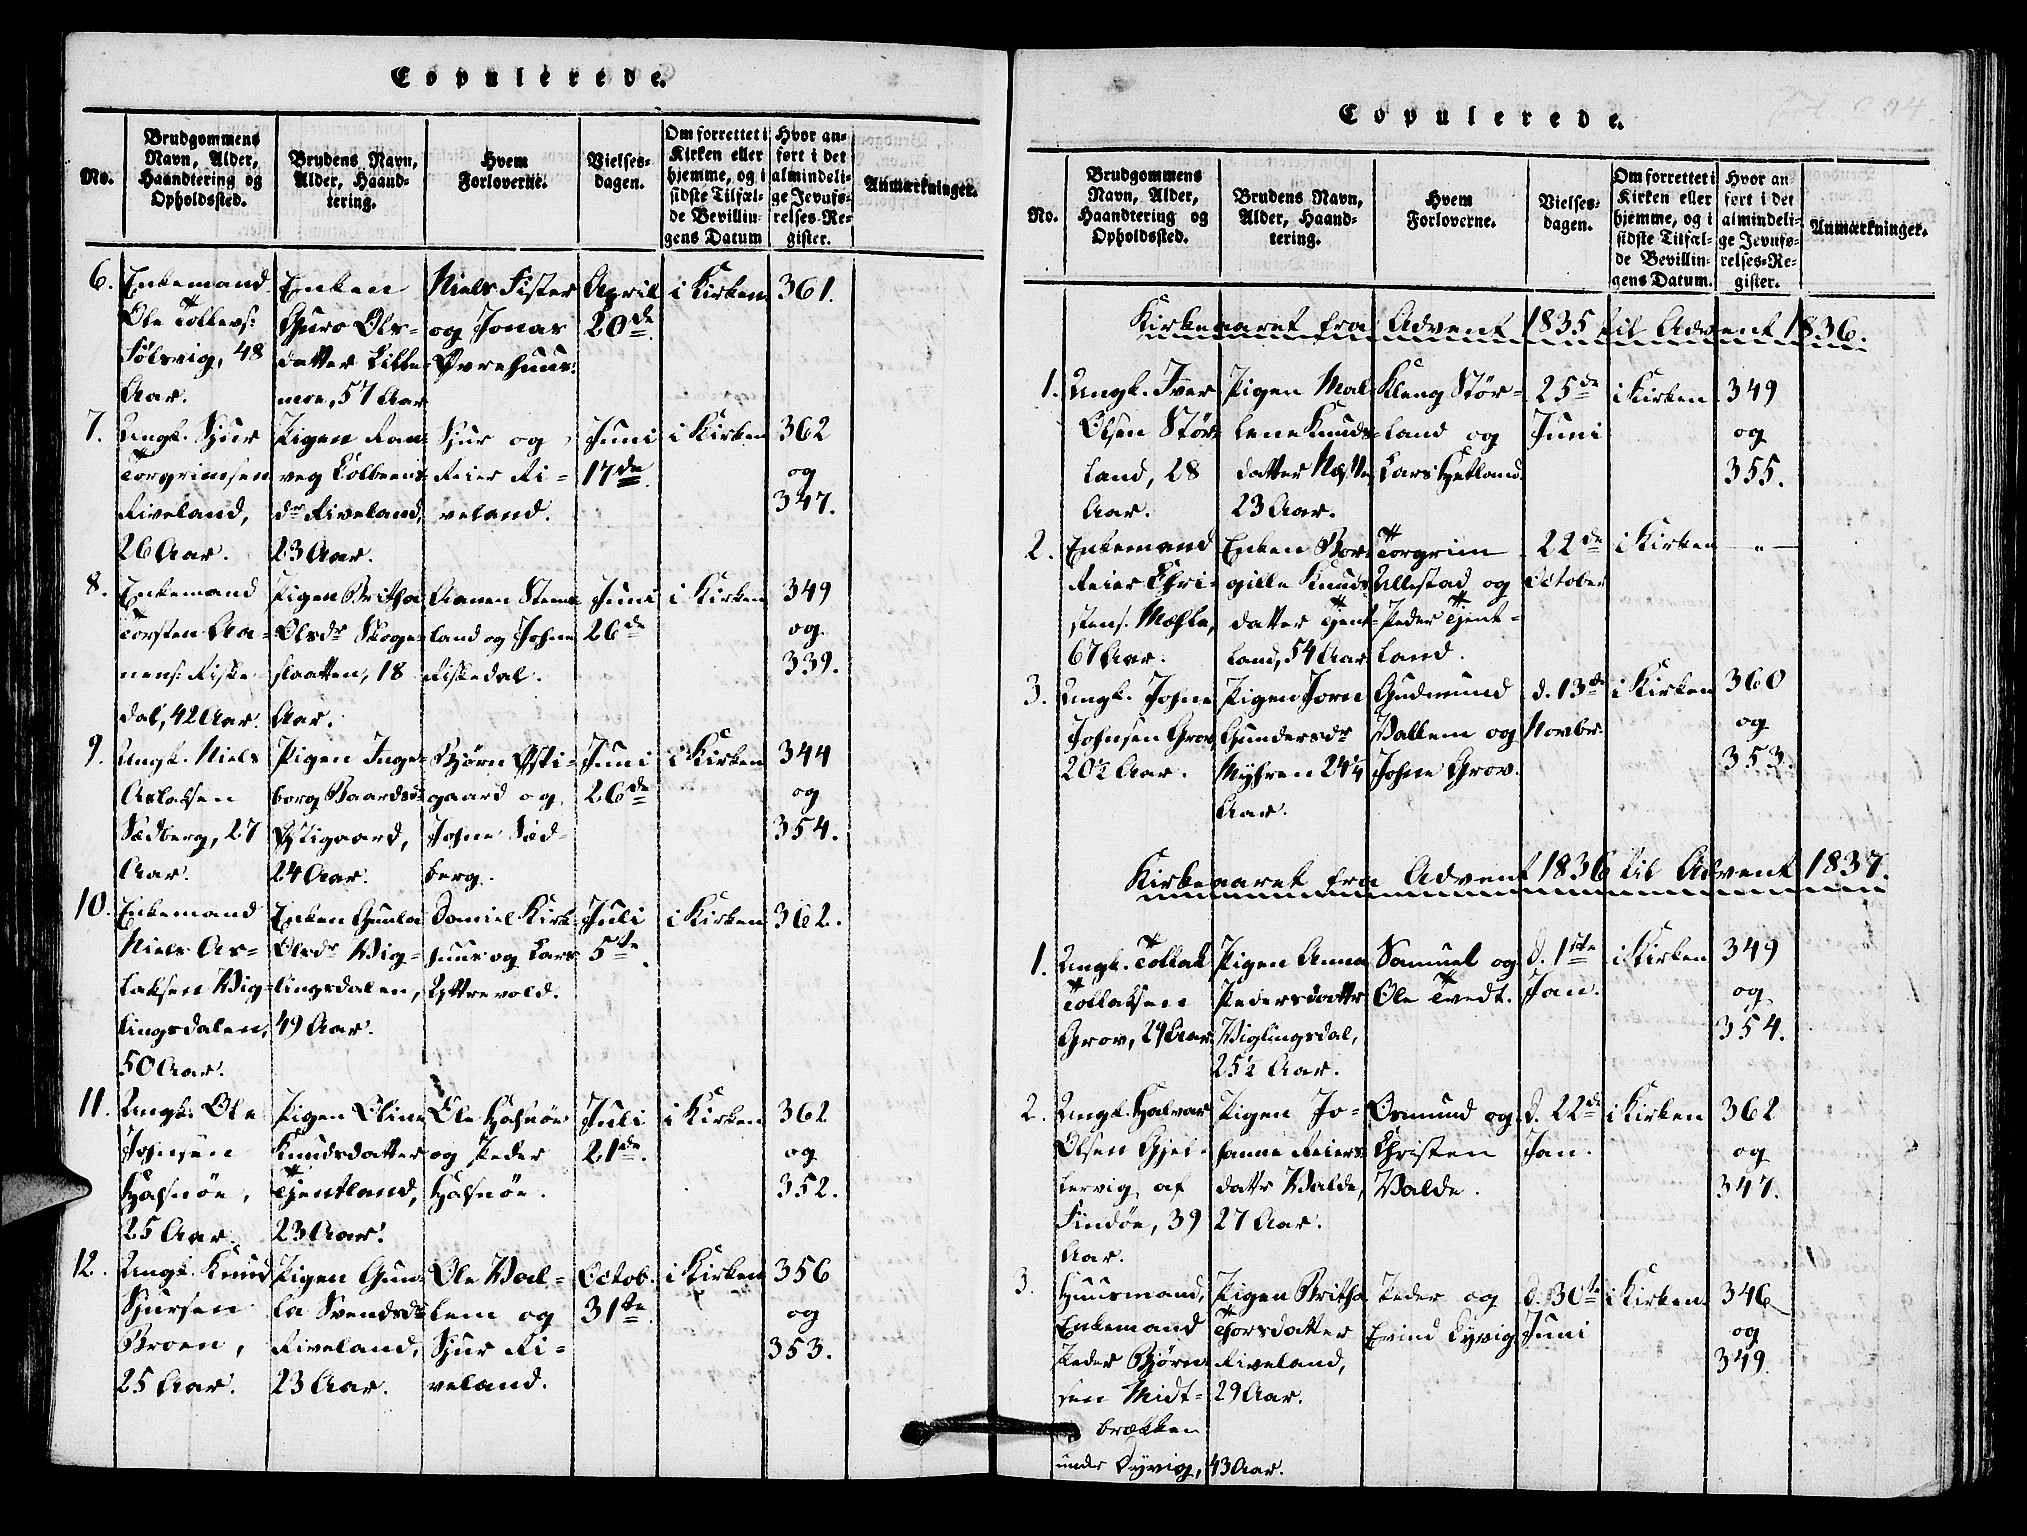 Copulerede.
No.
Brudgommens Navn, Alder, Haandtering og Opholdssted.
Brudens Navn, Alder, Haandtering.
Hvem Forloverne.
Vielsesdagen.
Om forrettet i Kirken eller hjemme, og i sidste Tilfælde Bevillingens Datum
Hvor anført i det almindelige Jevnførelses-Register.
Anmærkninger.
6.
Enkemand
Ole Tollevs:
48
Aar.
Enken
Guro Ols-
datter Lille-
moe, 57 Aar
Niels Fister
og Jonas
Øvrehuus:
April
20de
i Kirken
361.
7.
Ungk. Sjur
Torgrimsen
Riveland,
26 Aar.
Pigen Ran-
veg Kolbeens
dr Riveland,
23 Aar.
Sjur og
Reier Ri-
veland.
Juni
17de
i Kirken
362
og
347.
8.
Enkemand
Torsten Aa-
nens: Riske-
dal, 42 Aar.
Pigen Britha
Olsdr Skoge-
slaatten, 18
Aar.
Aanen Stene-
land og Johne
Riskedal.
Juni
26de
i Kirken
349
og
339.
9.
Ungk. Niels
Aslaksen
Sædberg, 27
Aar.
Pigen Inge-
borg Baardsdr
Østigaard,
24 Aar.
Bjørn Østi-
gaard og
Johne Sæd-
berg.
Juni
26de
i Kirken
344
og
354.
10.
Enkemand
Niels As-
laksen Vig-
lingsdalen,
50 Aar.
Enken Gunla
Olsdr Vig-
lingsdalen,
49 Aar.
Daniel Kirk-
huus og Lars
Yttrevold.
Juli
5te
i Kirken
362.
11.
Ungk. Ole
Johnsen
Halsnøe,
25 Aar.
Pigen Oline
Knudsdatter
Tjentland,
23 Aar.
Ole Halsnøe
og Peder
Halsnøe.
Juli
21de
i Kirken
362
og
352.
12.
Ungk. Knud
Sjursen
Broen,
25 Aar.
Pigen Gun-
la Svendsdr
Riveland,
23 Aar.
Ole Val-
lem og
Sjur Ri-
veland.
Octob.
31te
i Kirken
356
og
353.
Copulerede.
No.
Brudgommens Navn, Alder, Haandtering og Opholdssted.
Brudens Navn, Alder, Haandtering.
Hvem Forloverne.
Vielsesdagen.
Om forrettet i Kirken eller hjemme, og i sidste Tilfælde Bevillingens Datum.
Hvor anført i det almindelige Jevnførelses-Register.
Anmærkninger.
Kirkeaaret fra Advent 1835 til Advent 1836.
1.
Ungk. Iver
Olsen Stør-
land, 28
Aar.
Pigen Mal-
lene Knuds-
datter Næsse
23 Aar.
Kleng Stør-
land og
Lars Hetland.
25de
Juni
i Kirken
349
og
355.
2.
Enkemand
Reier Chri-
stens: Mæhle,
67 Aar.
Enken Bor-
gille Knuds-
datter Tjent-
land, 54 Aar
Torgrim
Ullestad og
Peder Tjent-
land.
22de
October
i Kirken
— " —
3.
Ungk. Johne
Johnsen Grov,
20½ Aar.
Pigen Jorn
Gundersdr
Myhren 24¼
Aar.
Gudmund
Vallem og
Johne Grov.
d. 13de
Novbr.
i Kirken
360
og
353.
Kirkeaaret fra Advent 1836 til Advent 1837.
1.
Ungk. Tollak
Tollaksen
Grov, 29 Aar.
Pigen Anna
Pedersdattr
Viglingsdal,
25½ Aar.
Samuel og
Ole Tvedt.
d. 1ste
Jan.
i Kirken
349
og
354.
2.
Ungk. Halvar
Olsen Gjel-
lervig af
Findøe, 39
Aar.
Pigen Jo-
hanne Reiers-
dattr Valde,
27 Aar.
Osmund og
Christen
Valde.
d. 22de
Jan.
i Kirken
362
og
347.
3.
Huusmand,
Enkemand
Peder Bjørn-
sen Midt-
brækken
under Dyvig, 43 Aar.
Pigen Britha
Thorsdatter
Riveland,
29 Aar.
Peder og
Eivind Dyvig
d. 30te
Juni
i Kirken
346
og
349.